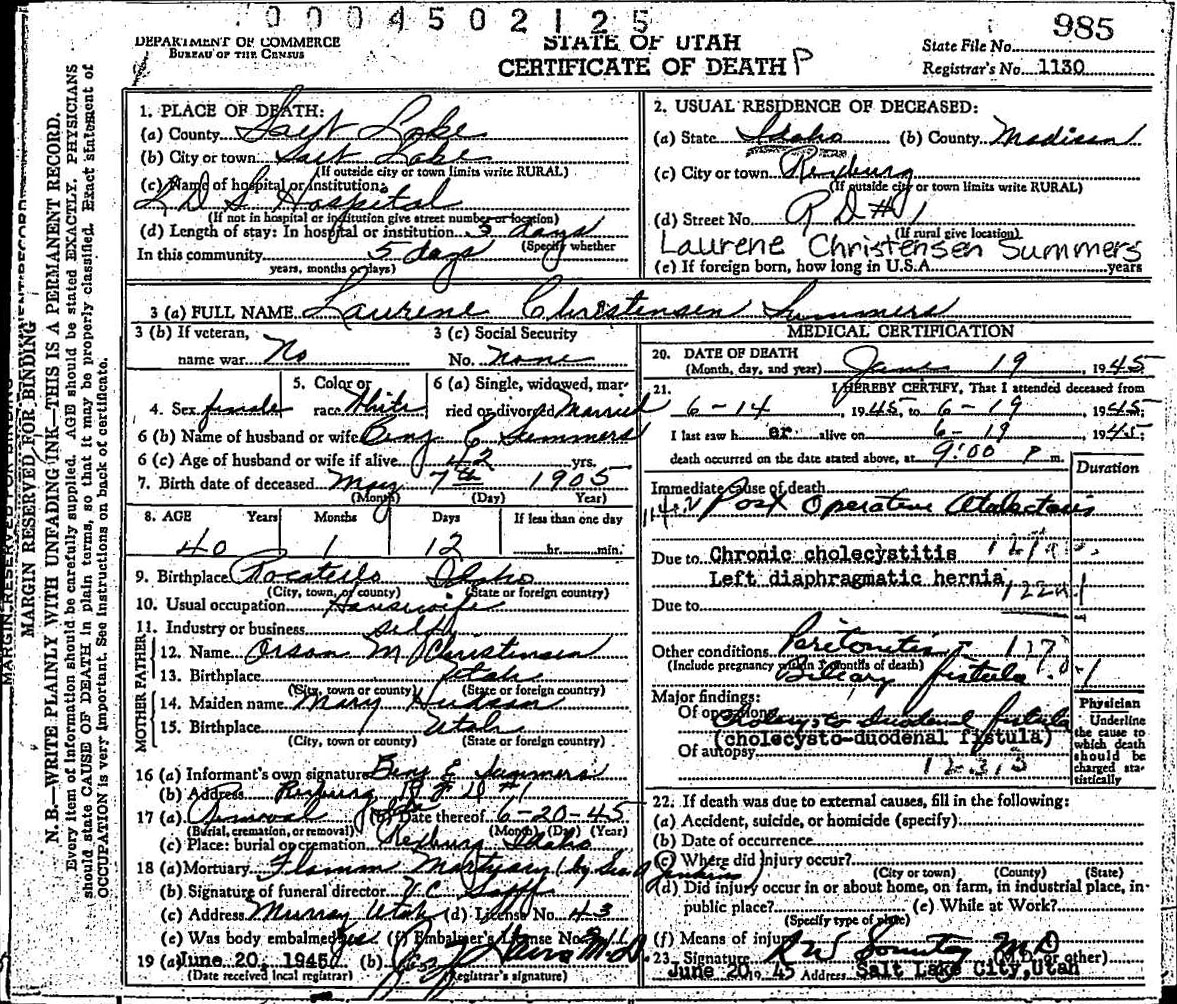 0 0 0 4 5 0 2 1 2 5
985
DEPARTMENT OF COMMERCE
BUREAU OF THE CENSUS
STATE OF UTAH
CERTIFICATE OF DEATH P
State File No.
Registrar's No. 1130
MARGIN RESERVED FOR BINDING
N. B.—WRITE PLAINLY WITH UNFADING INK—THIS IS A PERMANENT RECORD.
Every item of information should be carefully supplied. AGE should be stated EXACTLY. PHYSICIANS
should state CAUSE OF DEATH in plain terms, so that it may be properly classified. Exact statement of
OCCUPATION is very important. See instructions on back of certificate.
1. PLACE OF DEATH:
(a) County Salt Lake
(b) City or town Salt Lake
(If outside city or town limits write RURAL)
(c) Name of hospital or institution:
L D S Hospital
(If not in hospital or institution give street number or location)
(d) Length of stay: In hospital or institution 3 days
(Specify whether
In this community 5 days
years, months or days)
2. USUAL RESIDENCE OF DECEASED:
(a) State Idaho (b) County Madison
(c) City or town Rexburg
(If outside city or town limits write RURAL)
(d) Street No. R D # 1
(If rural give location)
Laurene Christensen Summers
(e) If foreign born, how long in U.S.A. years
3 (a) FULL NAME Laurene Christensen Summers
3 (b) If veteran,
name war No
3 (c) Social Security
No. None
4. Sex female
5. Color or
race White
6 (a) Single, widowed, mar-
ried or divorced Married
6 (b) Name of husband or wife Benj E Summers
6 (c) Age of husband or wife if alive 42 yrs.
7. Birth date of deceased May 7th 1905
(Month) (Day) Year)
8. AGE Years Months Days If less than one day
40 1 12 hr. min.
9. Birthplace Pocatello Idaho
(City, town, or county) (State or foreign country)
10. Usual occupation Housewife
11. Industry or business self
MOTHER FATHER
12. Name Orson M Christensen
13. Birthplace Utah
(City, town or county) (State or foreign country)
14. Maiden name Mary Hudson
15. Birthplace Utah
(City, town or county) (State or foreign country)
16 (a) Informant's own signature Benj E Summers
(b) Address Rexburg R F D #1
17 (a) Removal (b) Date thereof 6-20-45
(Burial, cremation, or removal) (Month) (Day) (Year)
(c) Place: burial or cremation Rexburg Idaho
18 (a) Mortuary Flamm Mortuary (by Jenkins)
(b) Signature of funeral director
(c) Address Murray Utah (d) License No. 43
(e) Was body embalmed yes (f) Embalmer's License No.
19 (a) June 20, 1945 (b) M.D.
(Date received local registrar) (Registrar's signature)
MEDICAL CERTIFICATION
20. DATE OF DEATH
(Month, day, and year) June 19, 1945
21. I HEREBY CERTIFY, That I attended deceased from
6-14, 1945, to 6-19, 1945;
I last saw h er alive on 6-19, 1945;
death occurred on the date stated above, at 9:00 P m.
Duration
Immediate cause of death
Post Operative Atelectasis
Due to Chronic cholecystitis
Left diaphragmatic hernia
Due to
Other conditions Peritonitis
(Include pregnancy within 3 months of death)
Biliary fistula
Major findings:
Of operations Cholecysto duodenal fistula
(cholecysto-duodenal fistula)
Of autopsy
Physician
Underline
the cause to
which death
should be
charged sta-
tistically
22. If death was due to external causes, fill in the following:
(a) Accident, suicide, or homicide (specify)
(b) Date of occurrence
(c) Where did injury occur?
(City or town) (County) (State)
(d) Did injury occur in or about home, on farm, in industrial place, in
public place? (e) While at Work?
(Specify type of place)
(f) Means of injury
23. Signature R W M D
(M.D. or other)
June 20, 45 Address Salt Lake City, Utah